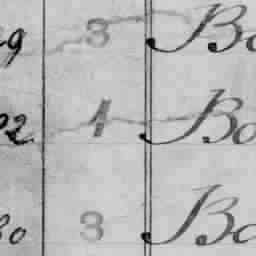 9 3 Bo
22 1 Bo
30 3 Bo